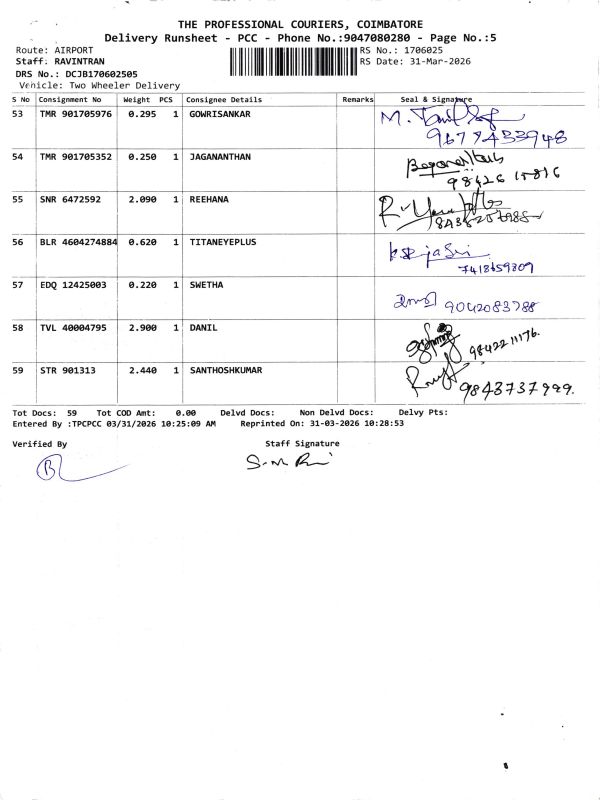 THE PROFESSIONAL COURIERS, COIMBATORE
Delivery Runsheet - PCC - Phone No.:9047080280 - Page No.:5
Route: AIRPORT RS No.: 1706025
Staff: RAVINTRAN RS Date: 31-Mar-2026
DRS No.: DCJB170602505
Vehicle: Two Wheeler Delivery
S No Consignment No Weight PCS Consignee Details Remarks Seal & Signature
53 TMR 901705976 0.295 1 GOWRISANKAR
54 TMR 901705352 0.250 1 JAGANANTHAN
55 SNR 6472592 2.090 1 REEHANA
56 BLR 4604274884 0.620 1 TITANEYEPLUS
7418659809
57 EDQ 12425003 0.220 1 SWETHA
9042083788
58 TVL 40004795 2.900 1 DANIL
59 STR 901313 2.440 1 SANTHOSHKUMAR
Tot Docs: 59 Tot COD Amt: 0.00 Delvd Docs: Non Delvd Docs: Delvy Pts:
Entered By :TPCPCC 03/31/2026 10:25:09 AM Reprinted On: 31-03-2026 10:28:53
Verified By Staff Signature